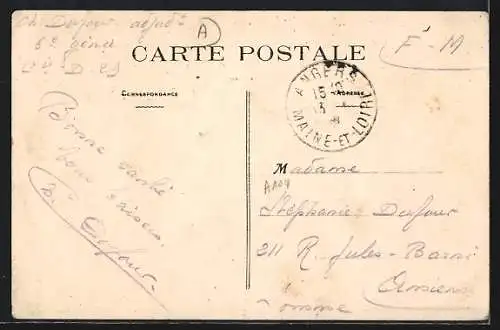 Ch. Dufour adjudt
6e génie
A
F-M
CARTE POSTALE
CORRESPONDANCE
ADRESSE
ANGERS
MAINE-ET-LOIRE
Bonne santé
bons baisers
Dufour
Madame
Stéphanie Dufour
211 R. Jules-Barni
Amiens
Somme